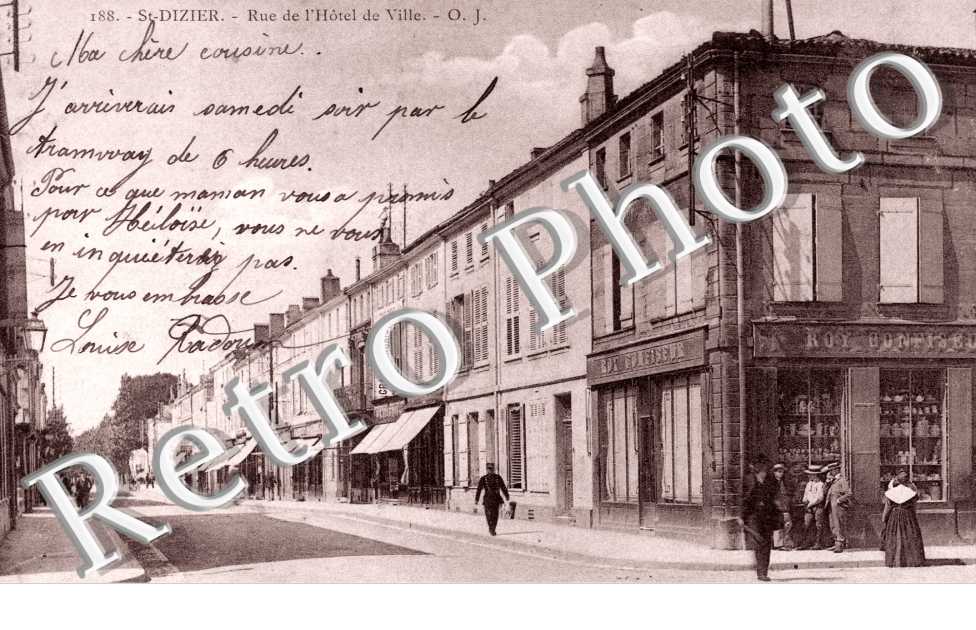 188. - St-DIZIER. - Rue de l'Hôtel de Ville. - O. J.
Ma chère cousine.
J'arriverais samedi soir par le
tramway de 6 heures.
Pour ce que maman vous a promis
pour Héloïse, vous ne vous
en inquiéterez pas.
Je vous embrasse
Louise
ROY CONFISEUR
ROY CONFISEUR
Retro Photo